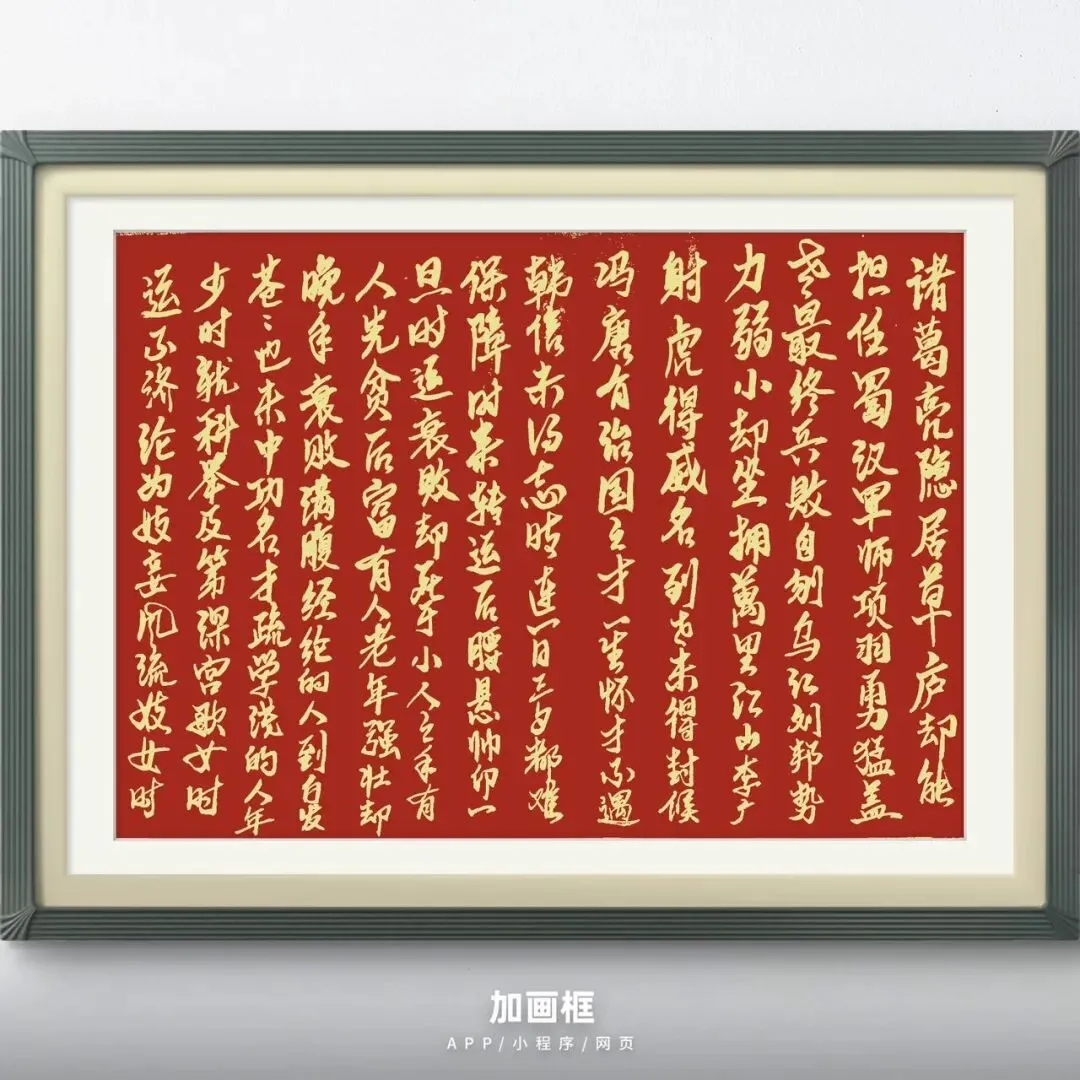 诸葛亮隐居草庐却能
担任蜀汉军师项羽勇猛盖
世最终兵败自刎乌江刘邦势
力弱小却坐拥萬里江山李广
射虎得威名到老未得封候
冯唐有治国之才一生怀才不遇
韩信未得志时连一日三夕都难
保障时来转运后腰悬帅印一
旦时运衰败却死于小人之手有
人先贫后富有人老年强壮却
晚年衰败满腹经纶的人到白发
苍〻也未中功名才疏学浅的人年
少时就科举及第深宫歌女时
运不济沦为妓妾风流妓女时
加画框
APP/小程序/网页